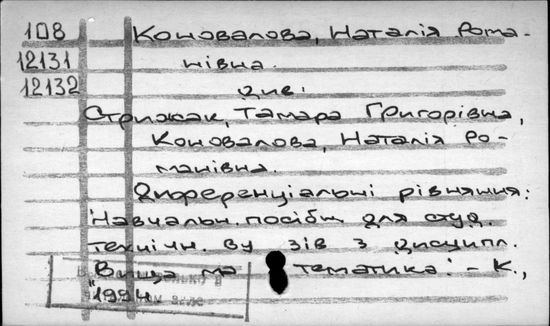 108 Коновалова, Наталія Рома-
12131 нівна.
12132 див:
Стрижак, Тамара Григорівна,
Коновалова, Наталія Ро-
манівна.
Диференціальні рівняння:
Навчальн. посібн. для студ.
технічн. ву зів з дисципл.
"Вища ма тематика". - К.,
1994